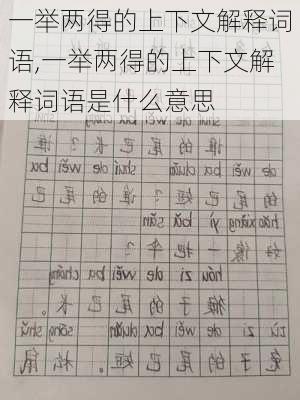 一举两得的上下文解释词
语,一举两得的上下文解
释词语是什么意思
谁的尾巴长?谁
de wěi ba duǎn shuí de wěi ba
的尾巴短?谁的尾巴
hǎo xiàng yì bǎ sǎn
好像一把伞?
hóu zi de wěi ba cháng
猴子的尾巴长。
tù zi de wěi ba duǎn sōng shǔ
兔子的尾巴短。松鼠